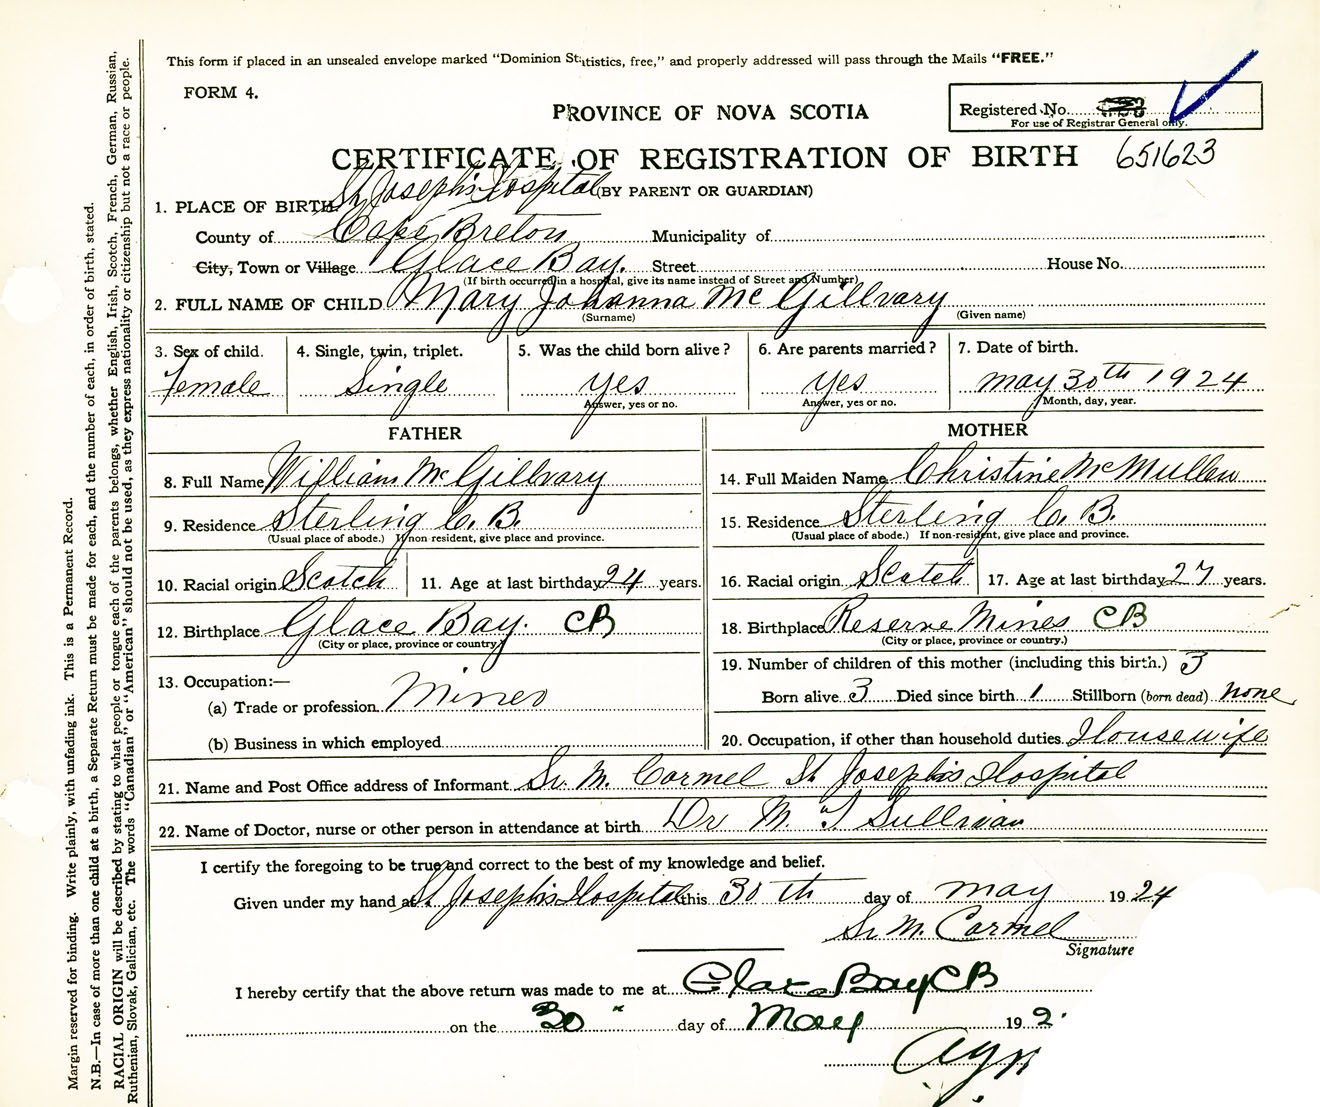 This form if placed in an unsealed envelope marked "Dominion Statistics, free," and properly addressed will pass through the Mails "FREE."
FORM 4.
PROVINCE OF NOVA SCOTIA
Registered No.
For use of Registrar General only.
CERTIFICATE OF REGISTRATION OF BIRTH 651623
St. Joseph's Hospital (BY PARENT OR GUARDIAN)
1. PLACE OF BIRTH
County of Cape Breton Municipality of
City, Town or Village Glace Bay. Street House No.
(If birth occurred in a hospital, give its name instead of Street and Number)
2. FULL NAME OF CHILD Mary Johanna McGillvary
(Surname) (Given name)
3. Sex of child. 4. Single, twin, triplet. 5. Was the child born alive? 6. Are parents married? 7. Date of birth.
Female Single yes yes may 30th 1924
Answer, yes or no. Answer, yes or no. Month, day, year.
FATHER MOTHER
8. Full Name William McGillvary 14. Full Maiden Name Christine McMullen
9. Residence Sterling C. B. 15. Residence Sterling C. B.
(Usual place of abode.) If non-resident, give place and province. (Usual place of abode.) If non-resident, give place and province.
10. Racial origin Scotch 11. Age at last birthday 24 years. 16. Racial origin Scotch 17. Age at last birthday 27 years.
12. Birthplace Glace Bay. CB 18. Birthplace Reserve Mines CB
(City or place, province or country) (City or place, province or country.)
19. Number of children of this mother (including this birth.) 3
13. Occupation:—
(a) Trade or profession Miner Born alive 3 Died since birth 1 Stillborn (born dead) none
(b) Business in which employed 20. Occupation, if other than household duties Housewife
21. Name and Post Office address of Informant Sr. M. Carmel St Joseph's Hospital
22. Name of Doctor, nurse or other person in attendance at birth Dr M. T Sullivan
I certify the foregoing to be true and correct to the best of my knowledge and belief.
Given under my hand at St Joseph's Hospital this 30th day of may 1924
Sr M. Carmel
Signature
I hereby certify that the above return was made to me at Glace Bay CB
on the 30 " day of May 192
Margin reserved for binding. Write plainly, with unfading ink. This is a Permanent Record.
N.B.—In case of more than one child at a birth, a Separate Return must be made for each, and the number of each, in order of birth, stated.
RACIAL ORIGIN will be described by stating to what people or tongue each of the parents belongs, whether English, Irish, Scotch, French, German, Russian,
Ruthenian, Slovak, Galician, etc. The words "Canadian" or "American" should not be used, as they express nationality or citizenship but not a race or people.